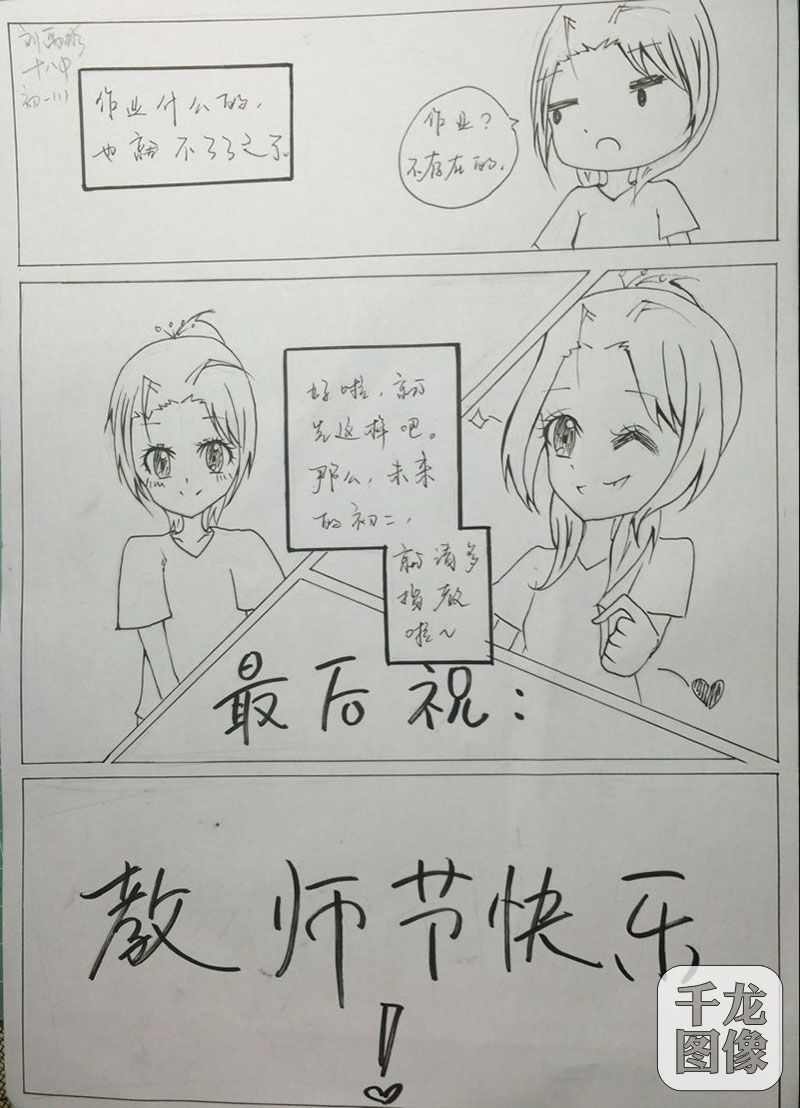 十八中
初一
作业什么的，
也就不了了之了。
作业？
不存在的。
好啦，就
先这样吧。
那么，未来
的初二，
就请多
指教
啦～
最后祝：
教师节快乐
！
千龙
图像